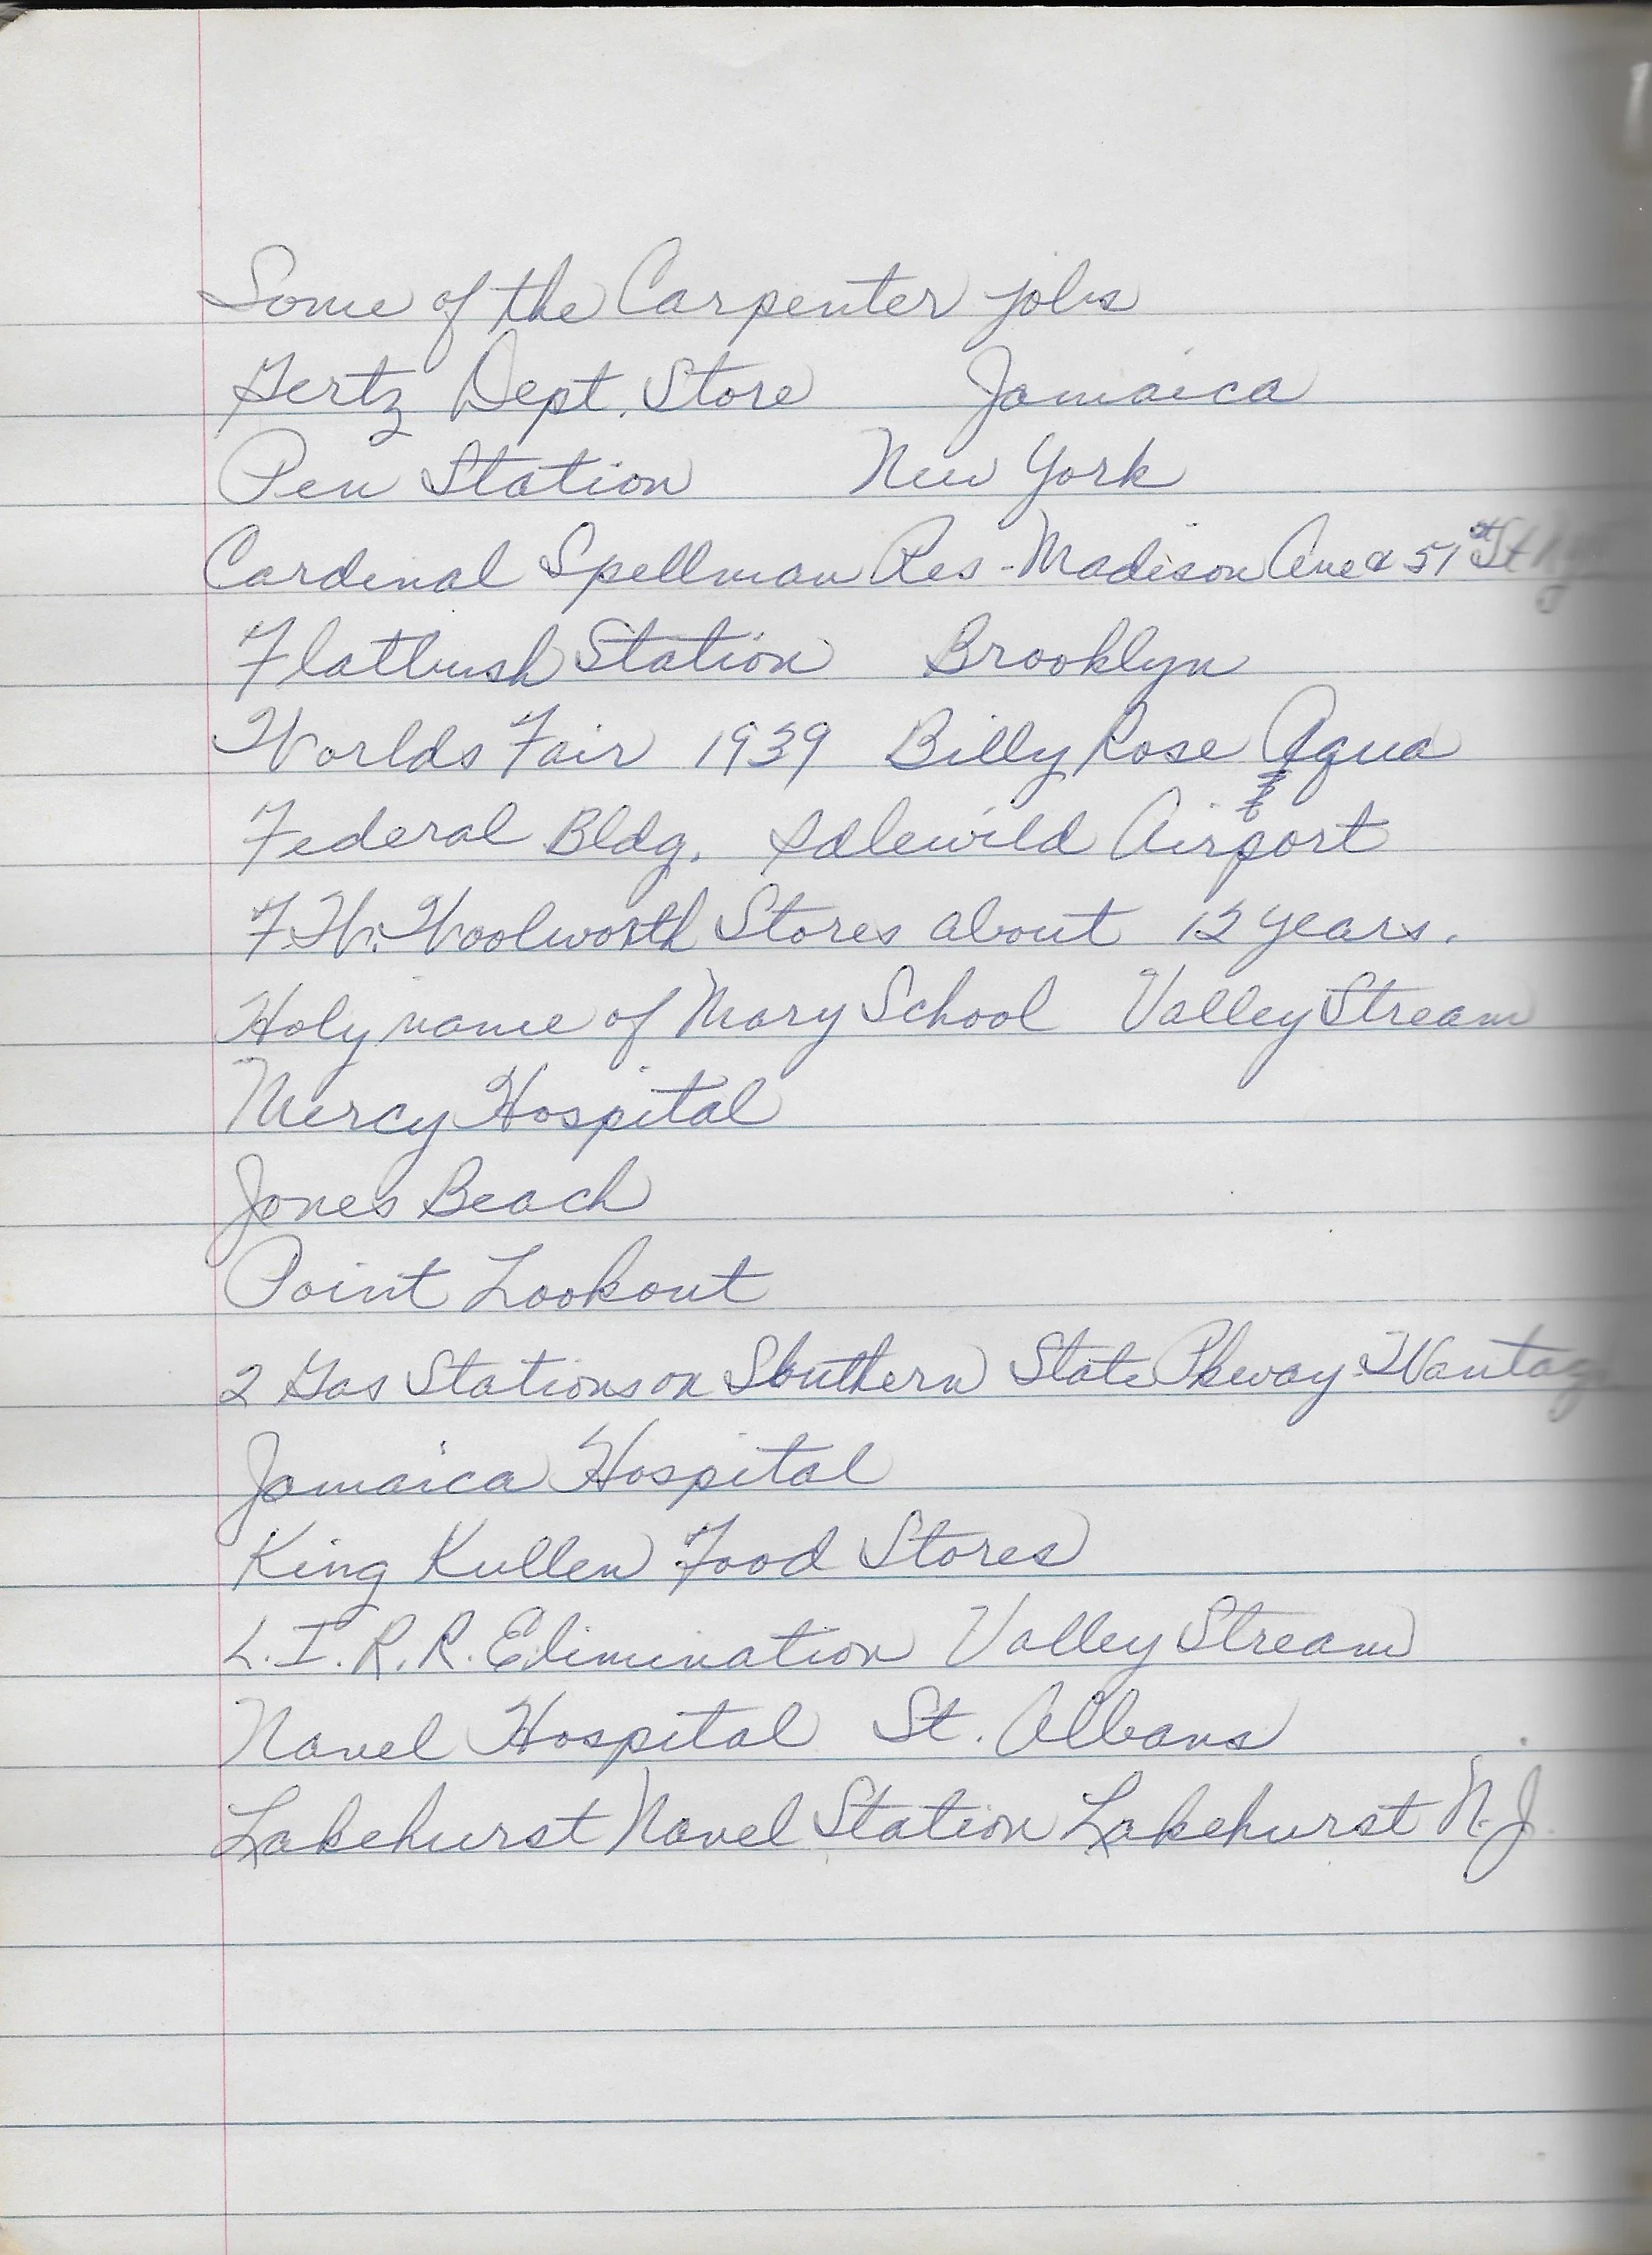 Some of the Carpenter jobs
Gertz Dept. Store Jamaica
Pen Station New York
Cardinal Spellman Res - Madison Ave & 51st St
Flatbush Station Brooklyn
Worlds Fair 1939 Billy Rose Aqua
Federal Bldg. Idlewild Airport
F.W. Woolworth Stores about 12 years.
Holy name of Mary School Valley Stream
Mercy Hospital
Jones Beach
Point Lookout
2 Gas Stations on Southern State Pkway - Wantag
Jamaica Hospital
King Kullen Food Stores
L.I.R.R. Elimination Valley Stream
Navel Hospital St. Albans
Lakehurst Navel Station Lakehurst N.J.